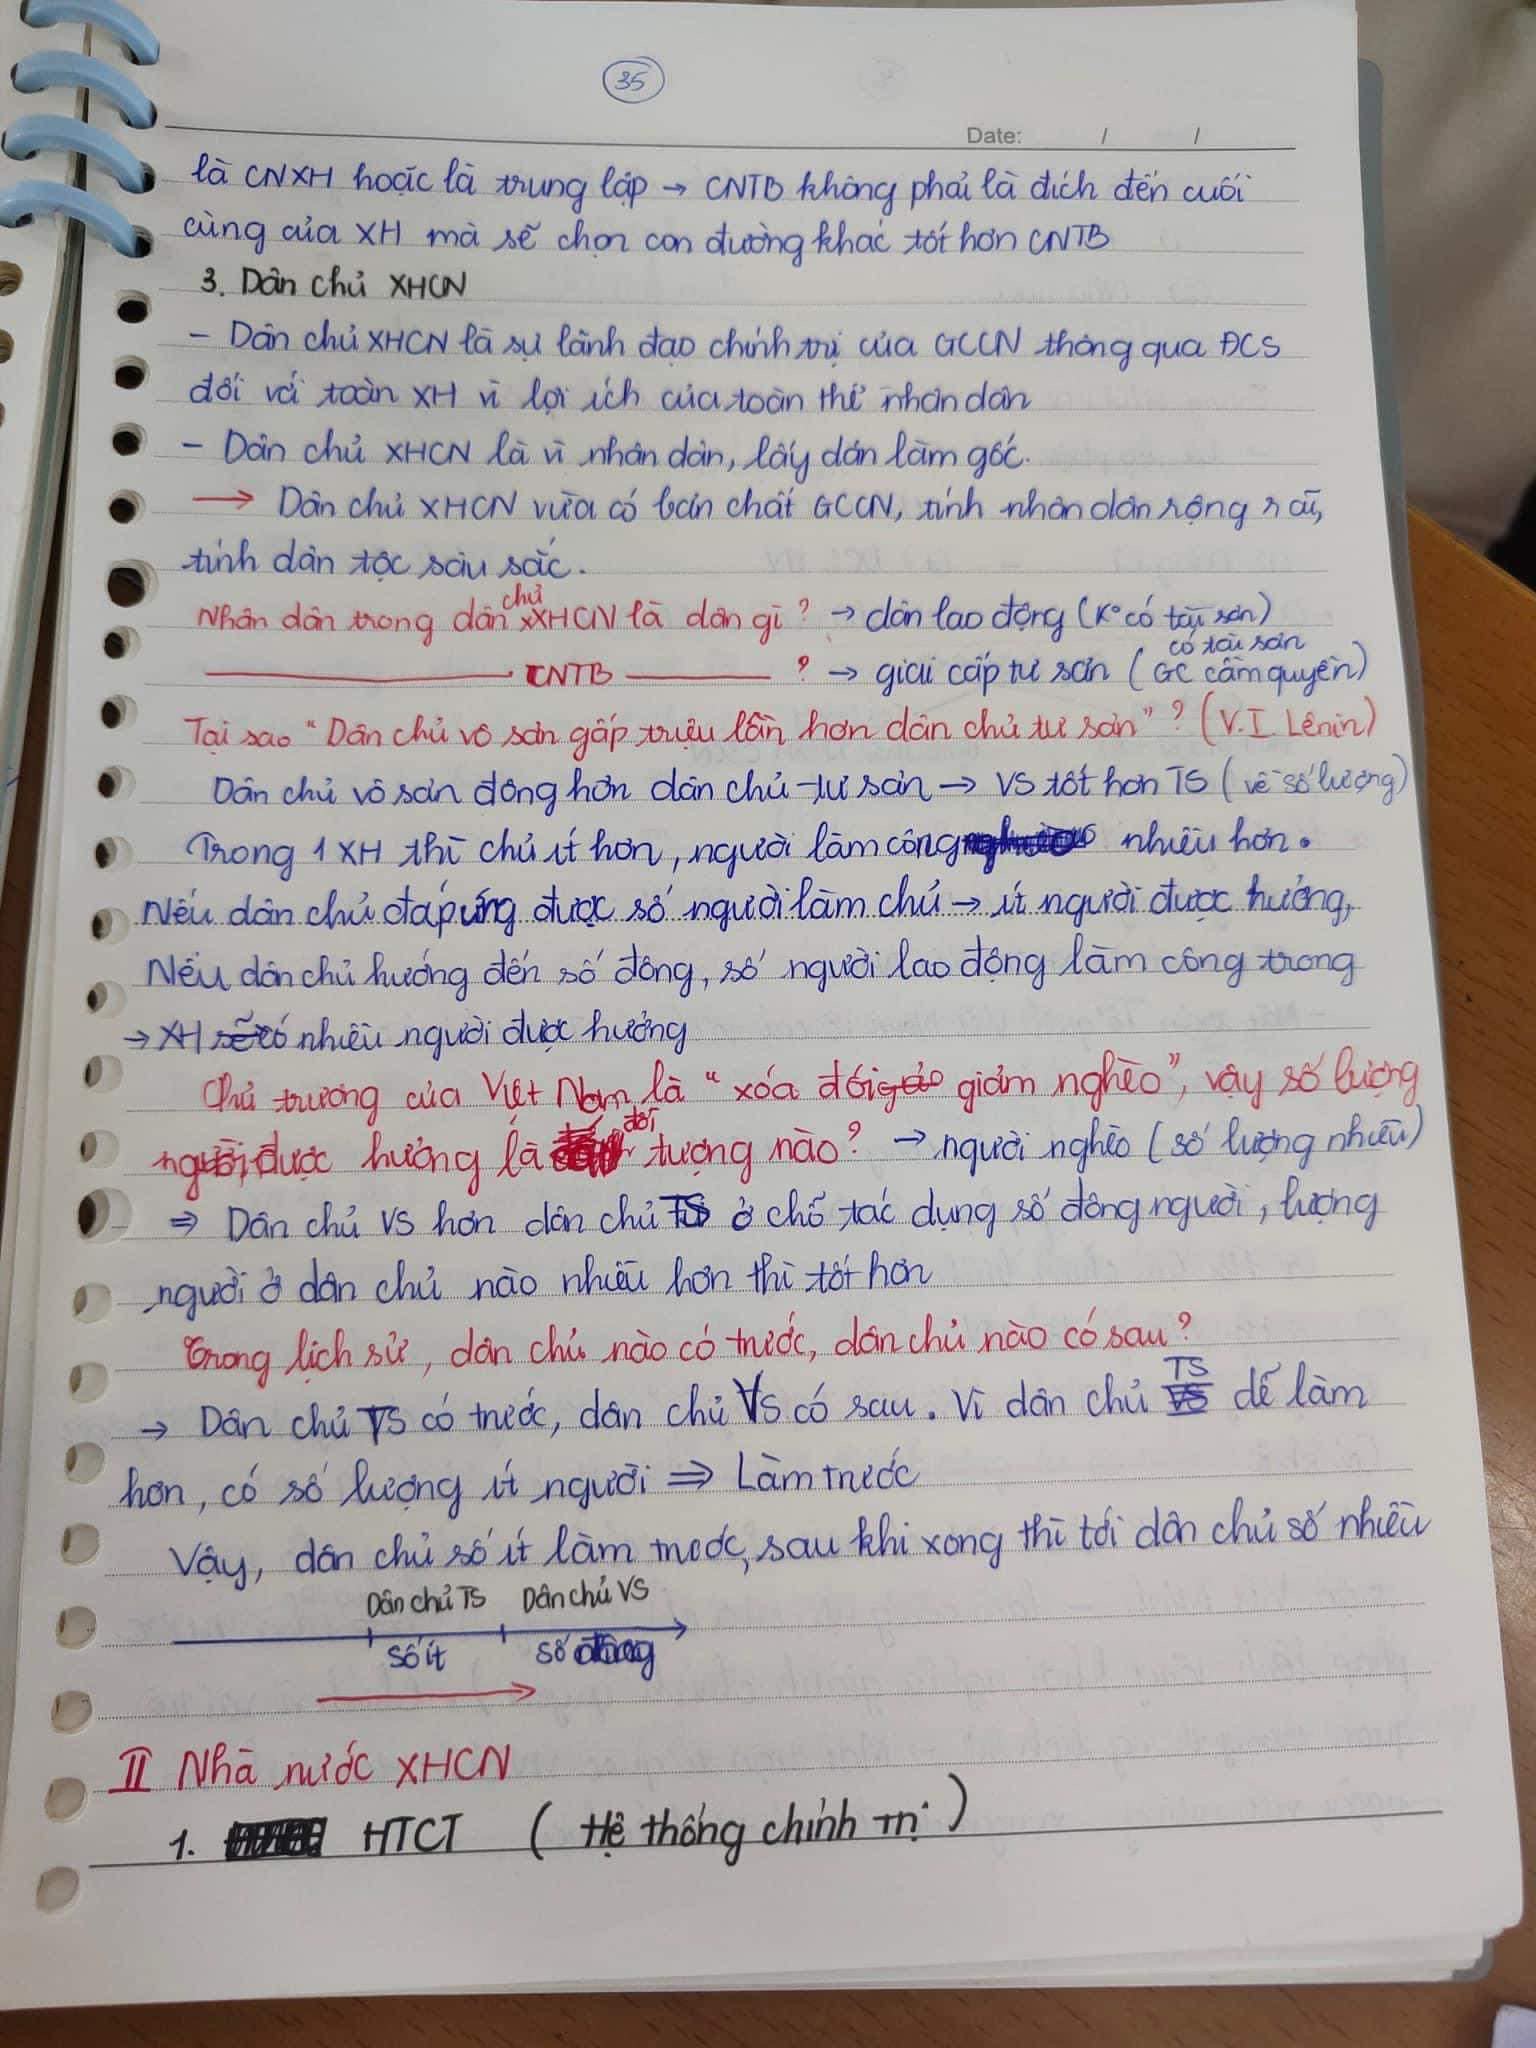 35
Date: / /
là CNXH hoặc là trung lập → CNTB không phải là đích đến cuối
cùng của XH mà sẽ chọn con đường khác tốt hơn CNTB
3. Dân chủ XHCN
- Dân chủ XHCN là sự lãnh đạo chính trị của GCCN thông qua ĐCS
đối với toàn XH vì lợi ích của toàn thể nhân dân
- Dân chủ XHCN là vì nhân dân, lấy dân làm gốc.
→ Dân chủ XHCN vừa có bản chất GCCN, tính nhân dân rộng rãi,
tính dân tộc sâu sắc.
Nhân dân trong dân chủ XHCN là dân gì? → dân lao động (K° có tài sản)
——— CNTB ——— ? → giai cấp tư sản (GC cầm quyền) có tài sản
Tại sao "Dân chủ vô sản gấp triệu lần hơn dân chủ tư sản"? (V.I. Lênin)
Dân chủ vô sản đông hơn dân chủ tư sản → VS tốt hơn TS (về số lượng)
Trong 1 XH thì chủ ít hơn, người làm công nhiều hơn.
Nếu dân chủ đáp ứng được số người làm chủ → ít người được hưởng,
Nếu dân chủ hướng đến số đông, số người lao động làm công trong
→ XH nhiều người được hưởng
Chủ trương của Việt Nam là "xóa đói giảm nghèo", vậy số lượng
người được hưởng là đối tượng nào? → người nghèo (số lượng nhiều)
⇒ Dân chủ VS hơn dân chủ TS ở chỗ tác dụng số đông người, lượng
người ở dân chủ nào nhiều hơn thì tốt hơn
Trong lịch sử, dân chủ nào có trước, dân chủ nào có sau?
→ Dân chủ TS có trước, dân chủ VS có sau. Vì dân chủ TS dễ làm
hơn, có số lượng ít người ⇒ Làm trước
Vậy, dân chủ số ít làm trước, sau khi xong thì tới dân chủ số nhiều
Dân chủ TS Dân chủ VS
số ít số đông
II Nhà nước XHCN
1. HTCT (Hệ thống chính trị)